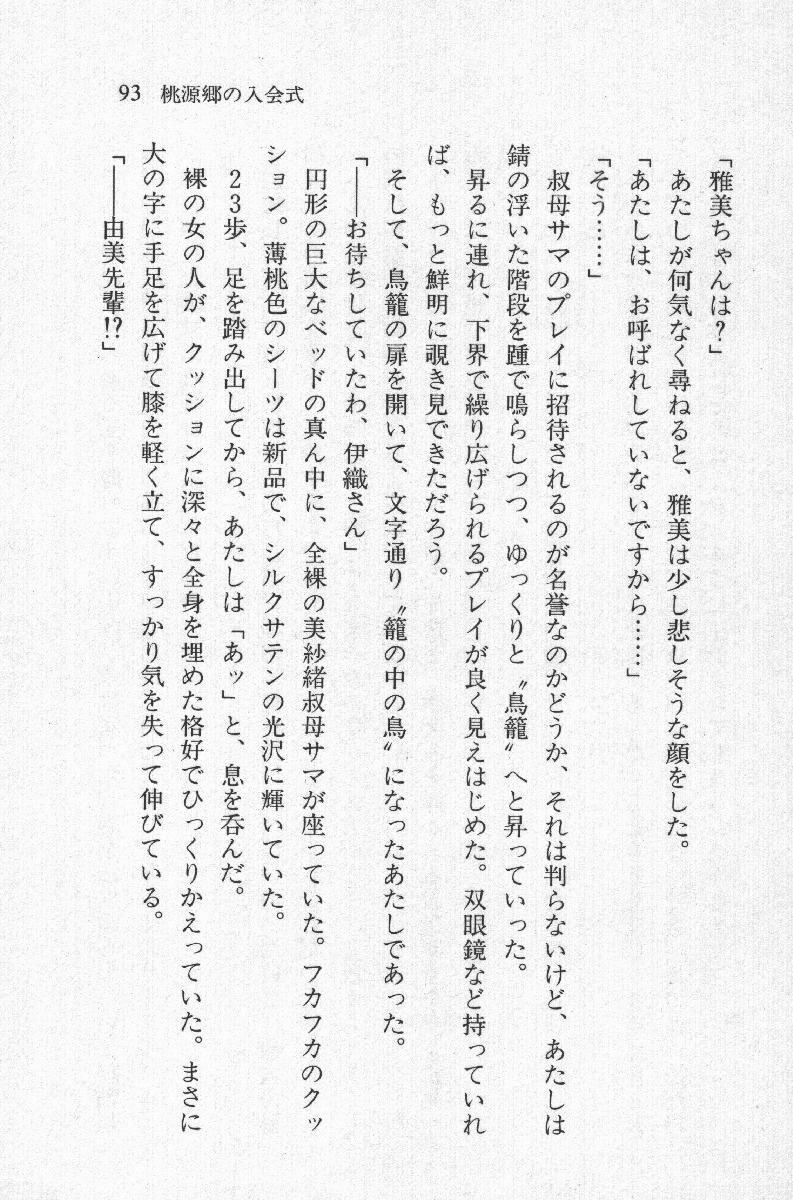 93 桃源郷の入会式
「雅美ちゃんは？」
あたしが何気なく尋ねると、雅美は少し悲しそうな顔をした。
「あたしは、お呼ばれしていないですから……」
「そう……」
叔母サマのプレイに招待されるのが名誉なのかどうか、それは判らないけど、あたしは
錆の浮いた階段を踵で鳴らしつつ、ゆっくりと〝鳥籠〟へと昇っていった。
昇るに連れ、下界で繰り広げられるプレイが良く見えはじめた。双眼鏡など持っていれ
ば、もっと鮮明に覗き見できただろう。
そして、鳥籠の扉を開いて、文字通り〝籠の中の鳥〟になったあたしであった。
「――お待ちしていたわ、伊織さん」
円形の巨大なベッドの真ん中に、全裸の美紗緒叔母サマが座っていた。フカフカのクッ
ション。薄桃色のシーツは新品で、シルクサテンの光沢に輝いていた。
２３歩、足を踏み出してから、あたしは「あッ」と、息を呑んだ。
裸の女の人が、クッションに深々と全身を埋めた格好でひっくりかえっていた。まさに
大の字に手足を広げて膝を軽く立て、すっかり気を失って伸びている。
「――由美先輩!?」